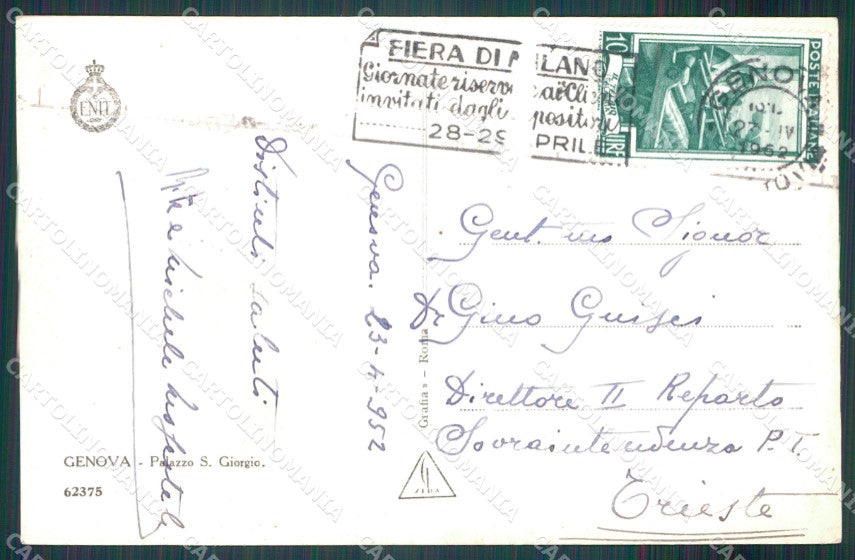 ENIT
FIERA DI MILANO
Giornate riserv ai Cli
invitati dagli positori
28-29 PRILE
10
LIRE
POSTE ITALIANE
GENOV
1952
Distinti saluti
Genova. 23-4-952
Gent. mo Signor
Dr Gino
Direttore II Reparto
Sovraintendenza P. T.
Trieste
Grafia s - Roma
GENOVA - Palazzo S. Giorgio.
62375
CARTOLINOMANIA